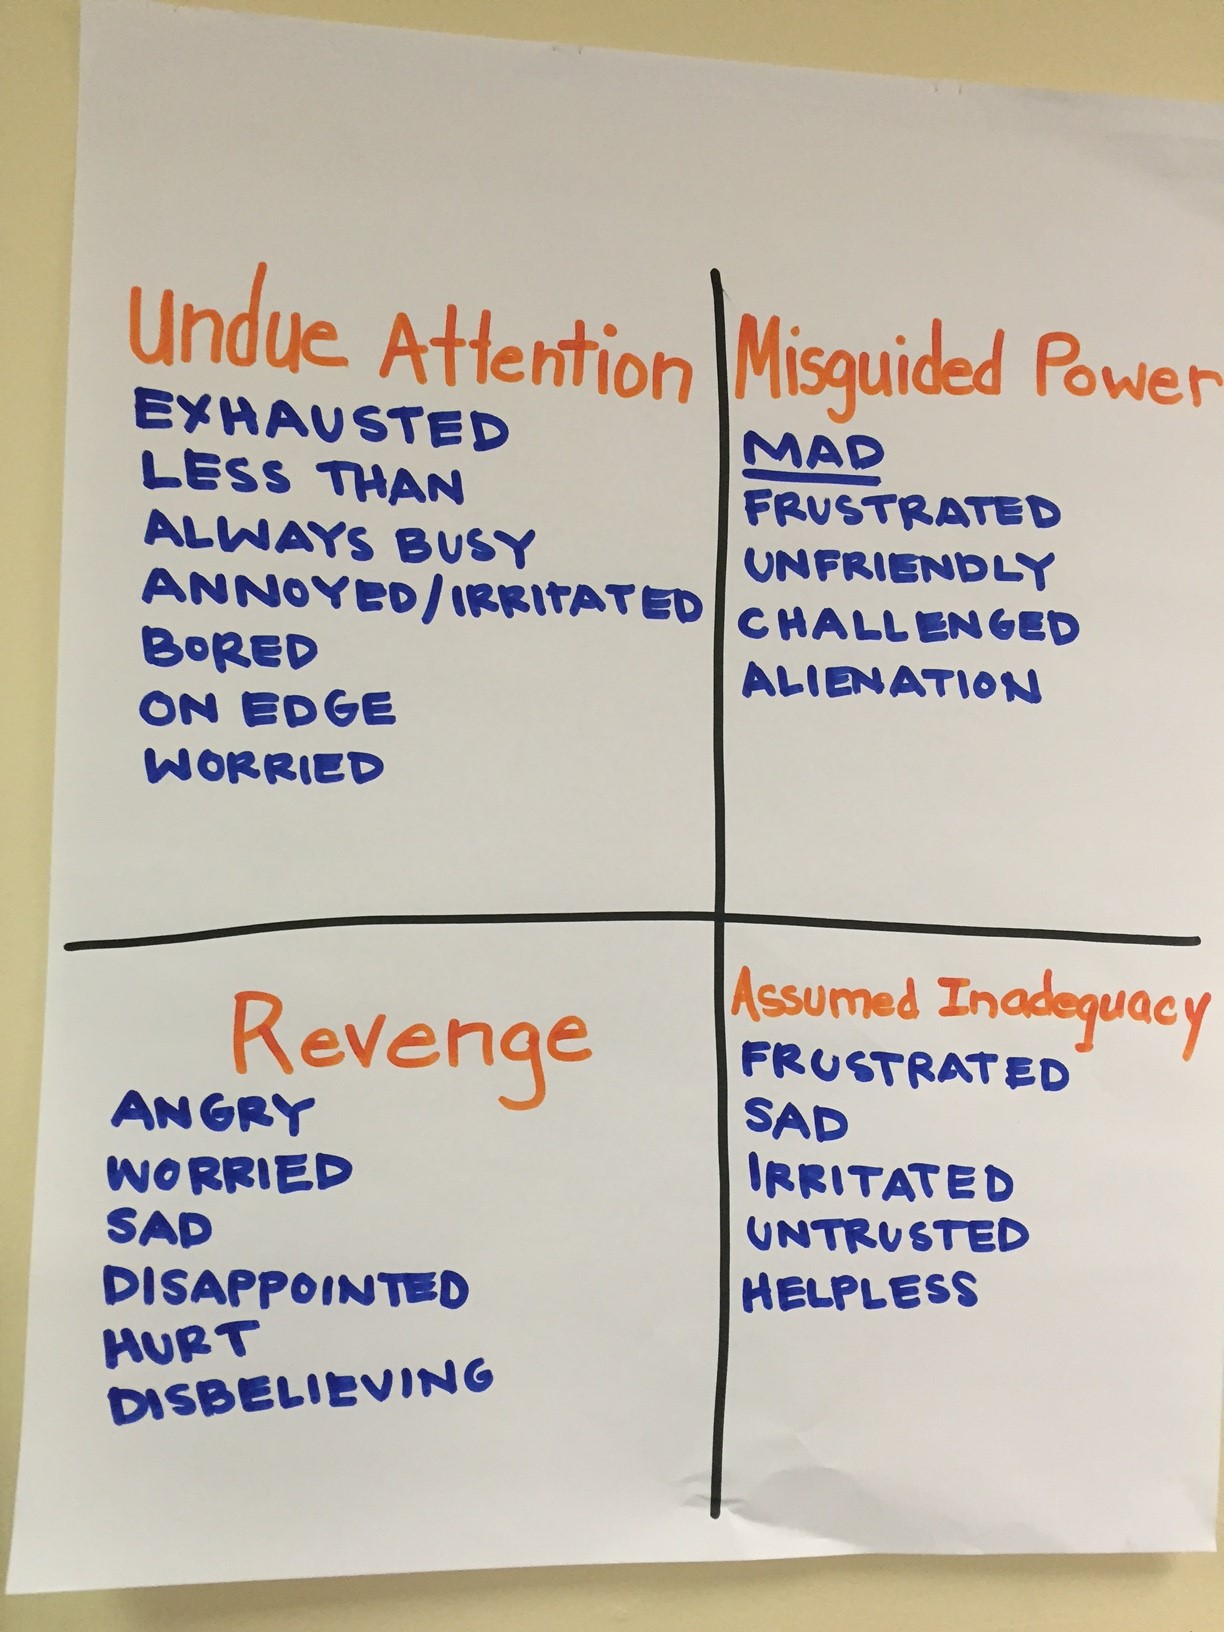 Undue Attention
EXHAUSTED
LESS THAN
ALWAYS BUSY
ANNOYED/IRRITATED
BORED
ON EDGE
WORRIED
Misguided Power
MAD
FRUSTRATED
UNFRIENDLY
CHALLENGED
ALIENATION
Revenge
ANGRY
WORRIED
SAD
DISAPPOINTED
HURT
DISBELIEVING
Assumed Inadequacy
FRUSTRATED
SAD
IRRITATED
UNTRUSTED
HELPLESS